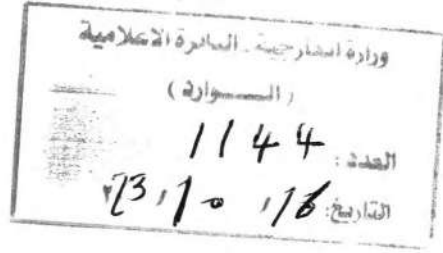 وزارة الخارجية - الدائرة الاعلامية
( الـــــواردة )
العدد : 1144
التاريخ: 16 / 10 / 23